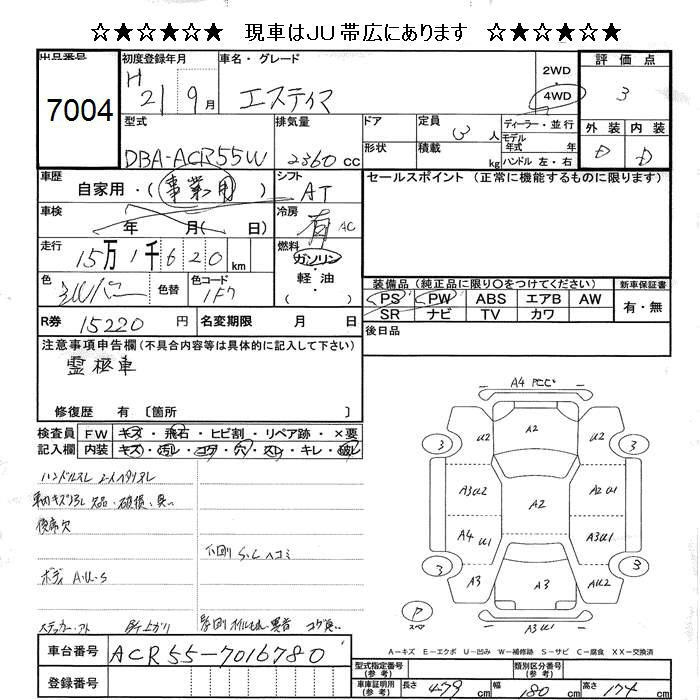 ☆★☆★☆★☆ 現車はJU帯広にあります ☆★☆★☆★☆
出品番号 初度登録年月 車名・グレード 2WD 評価点
7004 H 21 9月 エスティマ 4WD 3
型式 排気量 ドア 定員 3人 ディーラー・並行 外装 内装
DBA-ACR55W 2360 cc 形状 積載 kg モデル年式 年 D D
ハンドル 左・右
車歴 自家用・(事業用) シフト AT セールスポイント (正常に機能するものに限ります)
車検 年 月( 日) 冷房 有 AC
走行 15万1千620km 燃料 ガソリン・軽油
色 シルバー 色替 色コード 1F7
装備品(純正品に限り○をつけてください) 新車保証書
PS PW ABS エアB AW 有・無
SR ナビ TV カワ
R券 15220円 名変期限 月 日 後日品
注意事項申告欄(不具合内容等は具体的に記入して下さい)
霊柩車
修復歴 有 〔箇所 〕
検査員 FW キズ・飛石・ヒビ割・リペア跡・×要
記入欄 内装 キズ・汚レ・コゲ・穴・スレ・キレ・破レ
ハンドルスレ
車内キズ汚レ 欠品・破損・臭い
後席欠
下回りS.C ヘコミ
ボディ A・U・S
ステッカーアト
車台番号 ACR55-7016780
登録番号
型式指定番号(参考) 類別区分番号(参考)
車庫証明用(参考) 長さ 479cm 幅 180cm 高さ 174cm
A4 PCC
A2
3 U2 A2 3
A3U2 A2 A2U1
A4 U1 A3U1
3 A3 A3 A2U2 3
P スペア
A3U1
A-キズ E-エクボ U-凹み W-補修跡 S-サビ C-腐食 XX-交換済